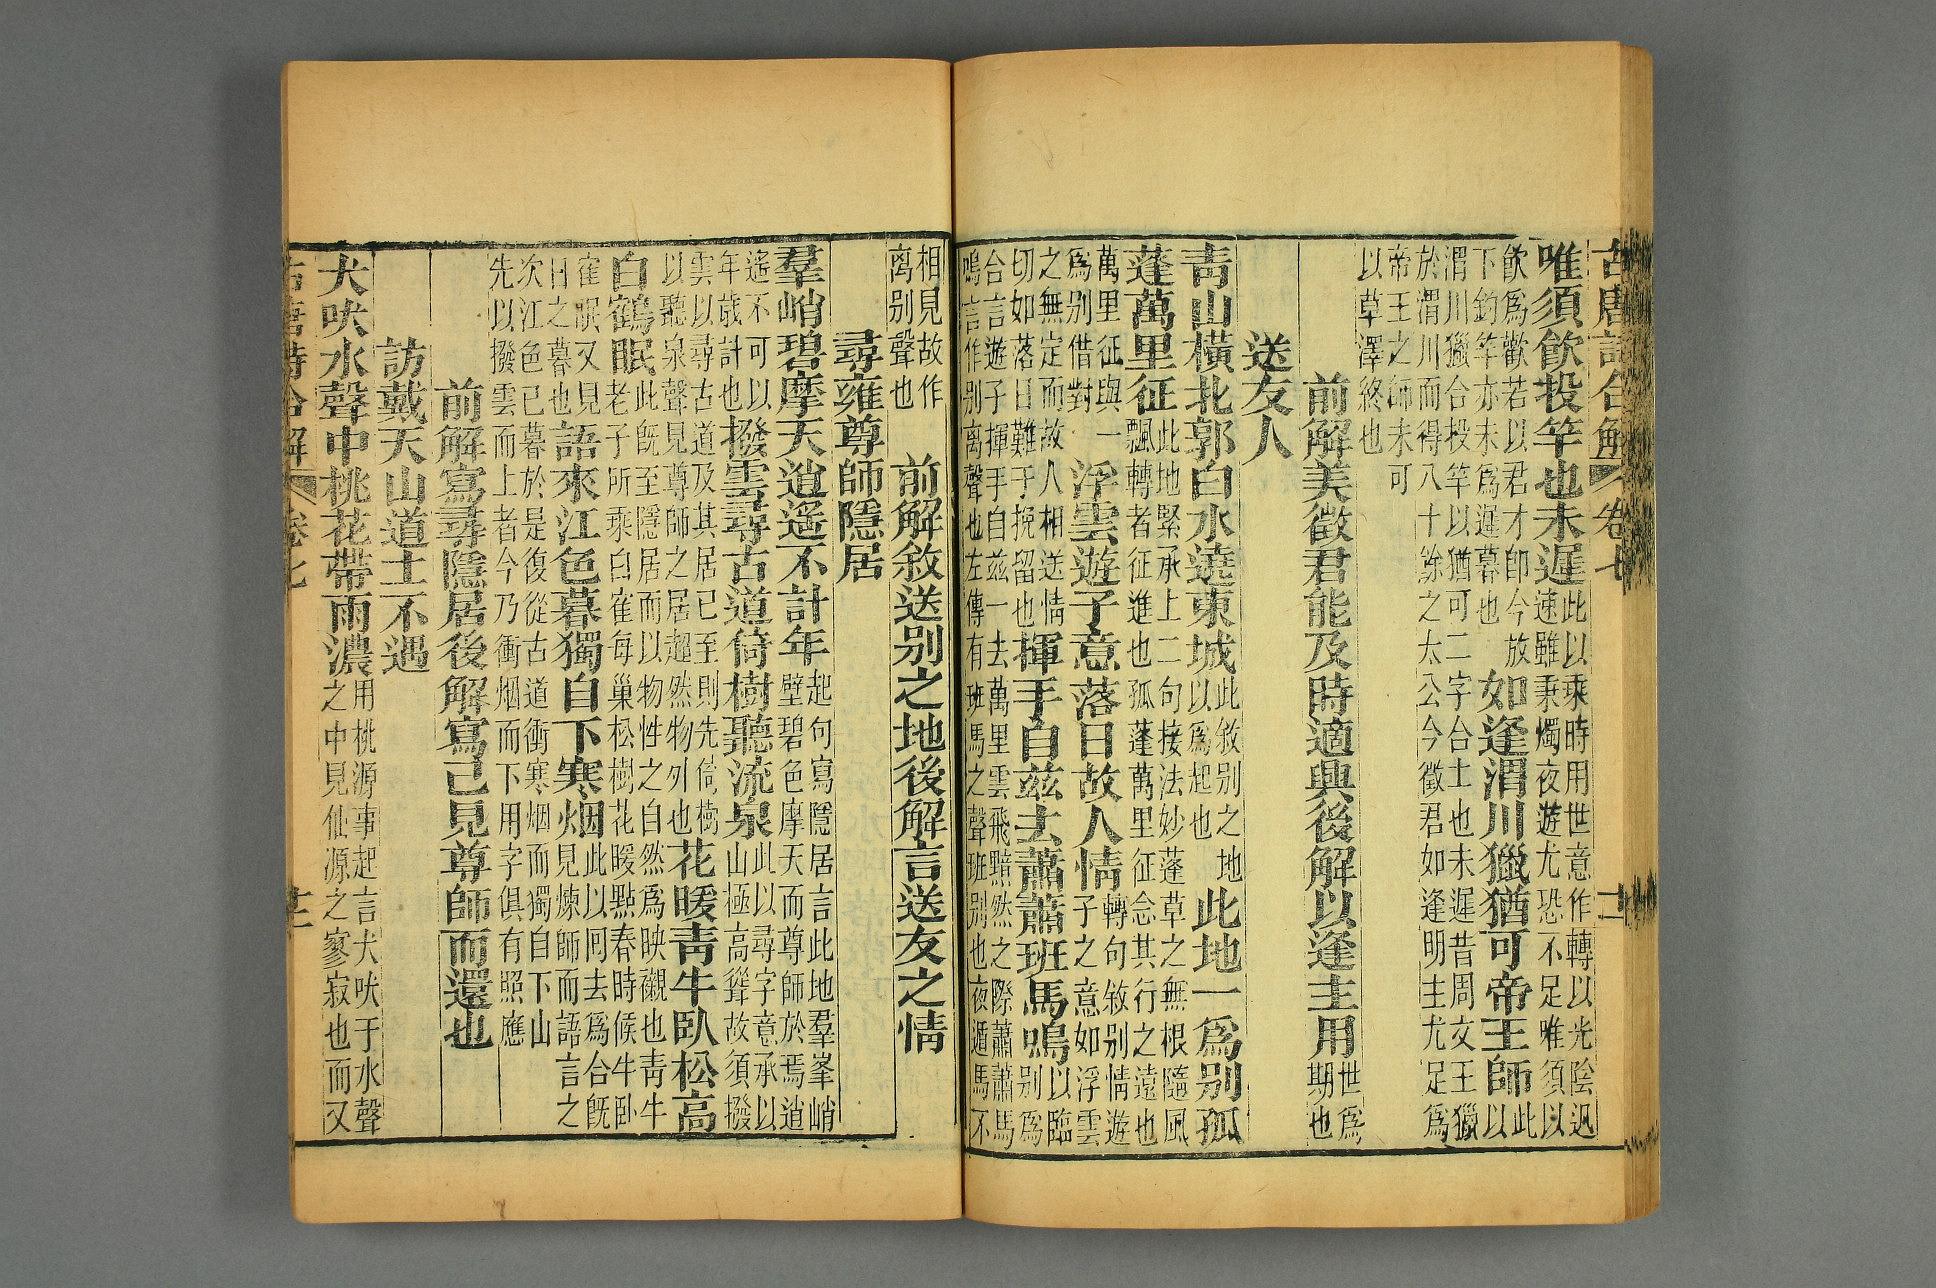 古唐詩合解 卷七 十一
唯須飲投竿也未遲
此以乘時用世意作轉以光陰迅
速雖秉燭夜遊尤恐不足唯須以
飲爲歡若以君才即今放
下釣竿亦未爲遲暮也
如逢渭川獵猶可帝王師
此
以
渭川獵合投竿以猶可二字合士也未遲昔周文王獵
於渭川而得八十餘之太公今徵君如逢明主尤足爲
帝王之師未可
以草澤終也
前解美徵君能及時適興後解以逢主用
世爲
期也
送友人
青山橫北郭白水遶東城
此敘别之地
以爲起也
此地一爲别孤
蓬萬里征
此地緊承上二句接法妙蓬草之無根隨風
飄轉者征進也孤蓬萬里征念其行之遠也
萬里征與一
爲别借對
浮雲遊子意落日故人情
轉句敘别情遊
子之意如浮雲
之無定而故人相送情
切如落日難于挽留也
揮手自茲去蕭蕭班馬鳴
以臨
别爲
合言遊子揮手自茲一去萬里雲飛黯然之際蕭蕭馬
鳴言作别離聲也左傳有班馬之聲班别也夜遁馬不
相見故作
离别聲也
前解敘送别之地後解言送友之情
尋雍尊師隱居
羣峭碧摩天逍遥不計年
起句寫隱居言此地羣峯峭
壁碧色摩天而尊師於焉逍
遙不可以
年歳計也
撥雲尋古道倚樹聽流泉
此以尋字意承以
山極高聳故須撥
雲以尋古道及其居已至則先倚樹
以聽泉聲見尊師之居超然物外也
花暖青牛臥松高
白鶴眠
此既至隱居而以物性之自然爲映襯也青牛
老子所乘白寉每巢松樹花暖㸃春時候牛卧
寉眠又見
日之暮也
語來江色暮獨自下寒烟
此以问去爲合既
見煉師而語言之
次江色已暮於是復從古道衝寒烟而獨自下山
先以撥雲而上者今乃衝烟而下用字俱有照應
前解寫尋隱居後解寫已見尊師而還也
訪戴天山道士不遇
犬吠水聲中桃花帶雨濃
用桃源事起言犬吠于水聲
之中見仙源之寥寂也而又
古唐詩合解 卷七 十二